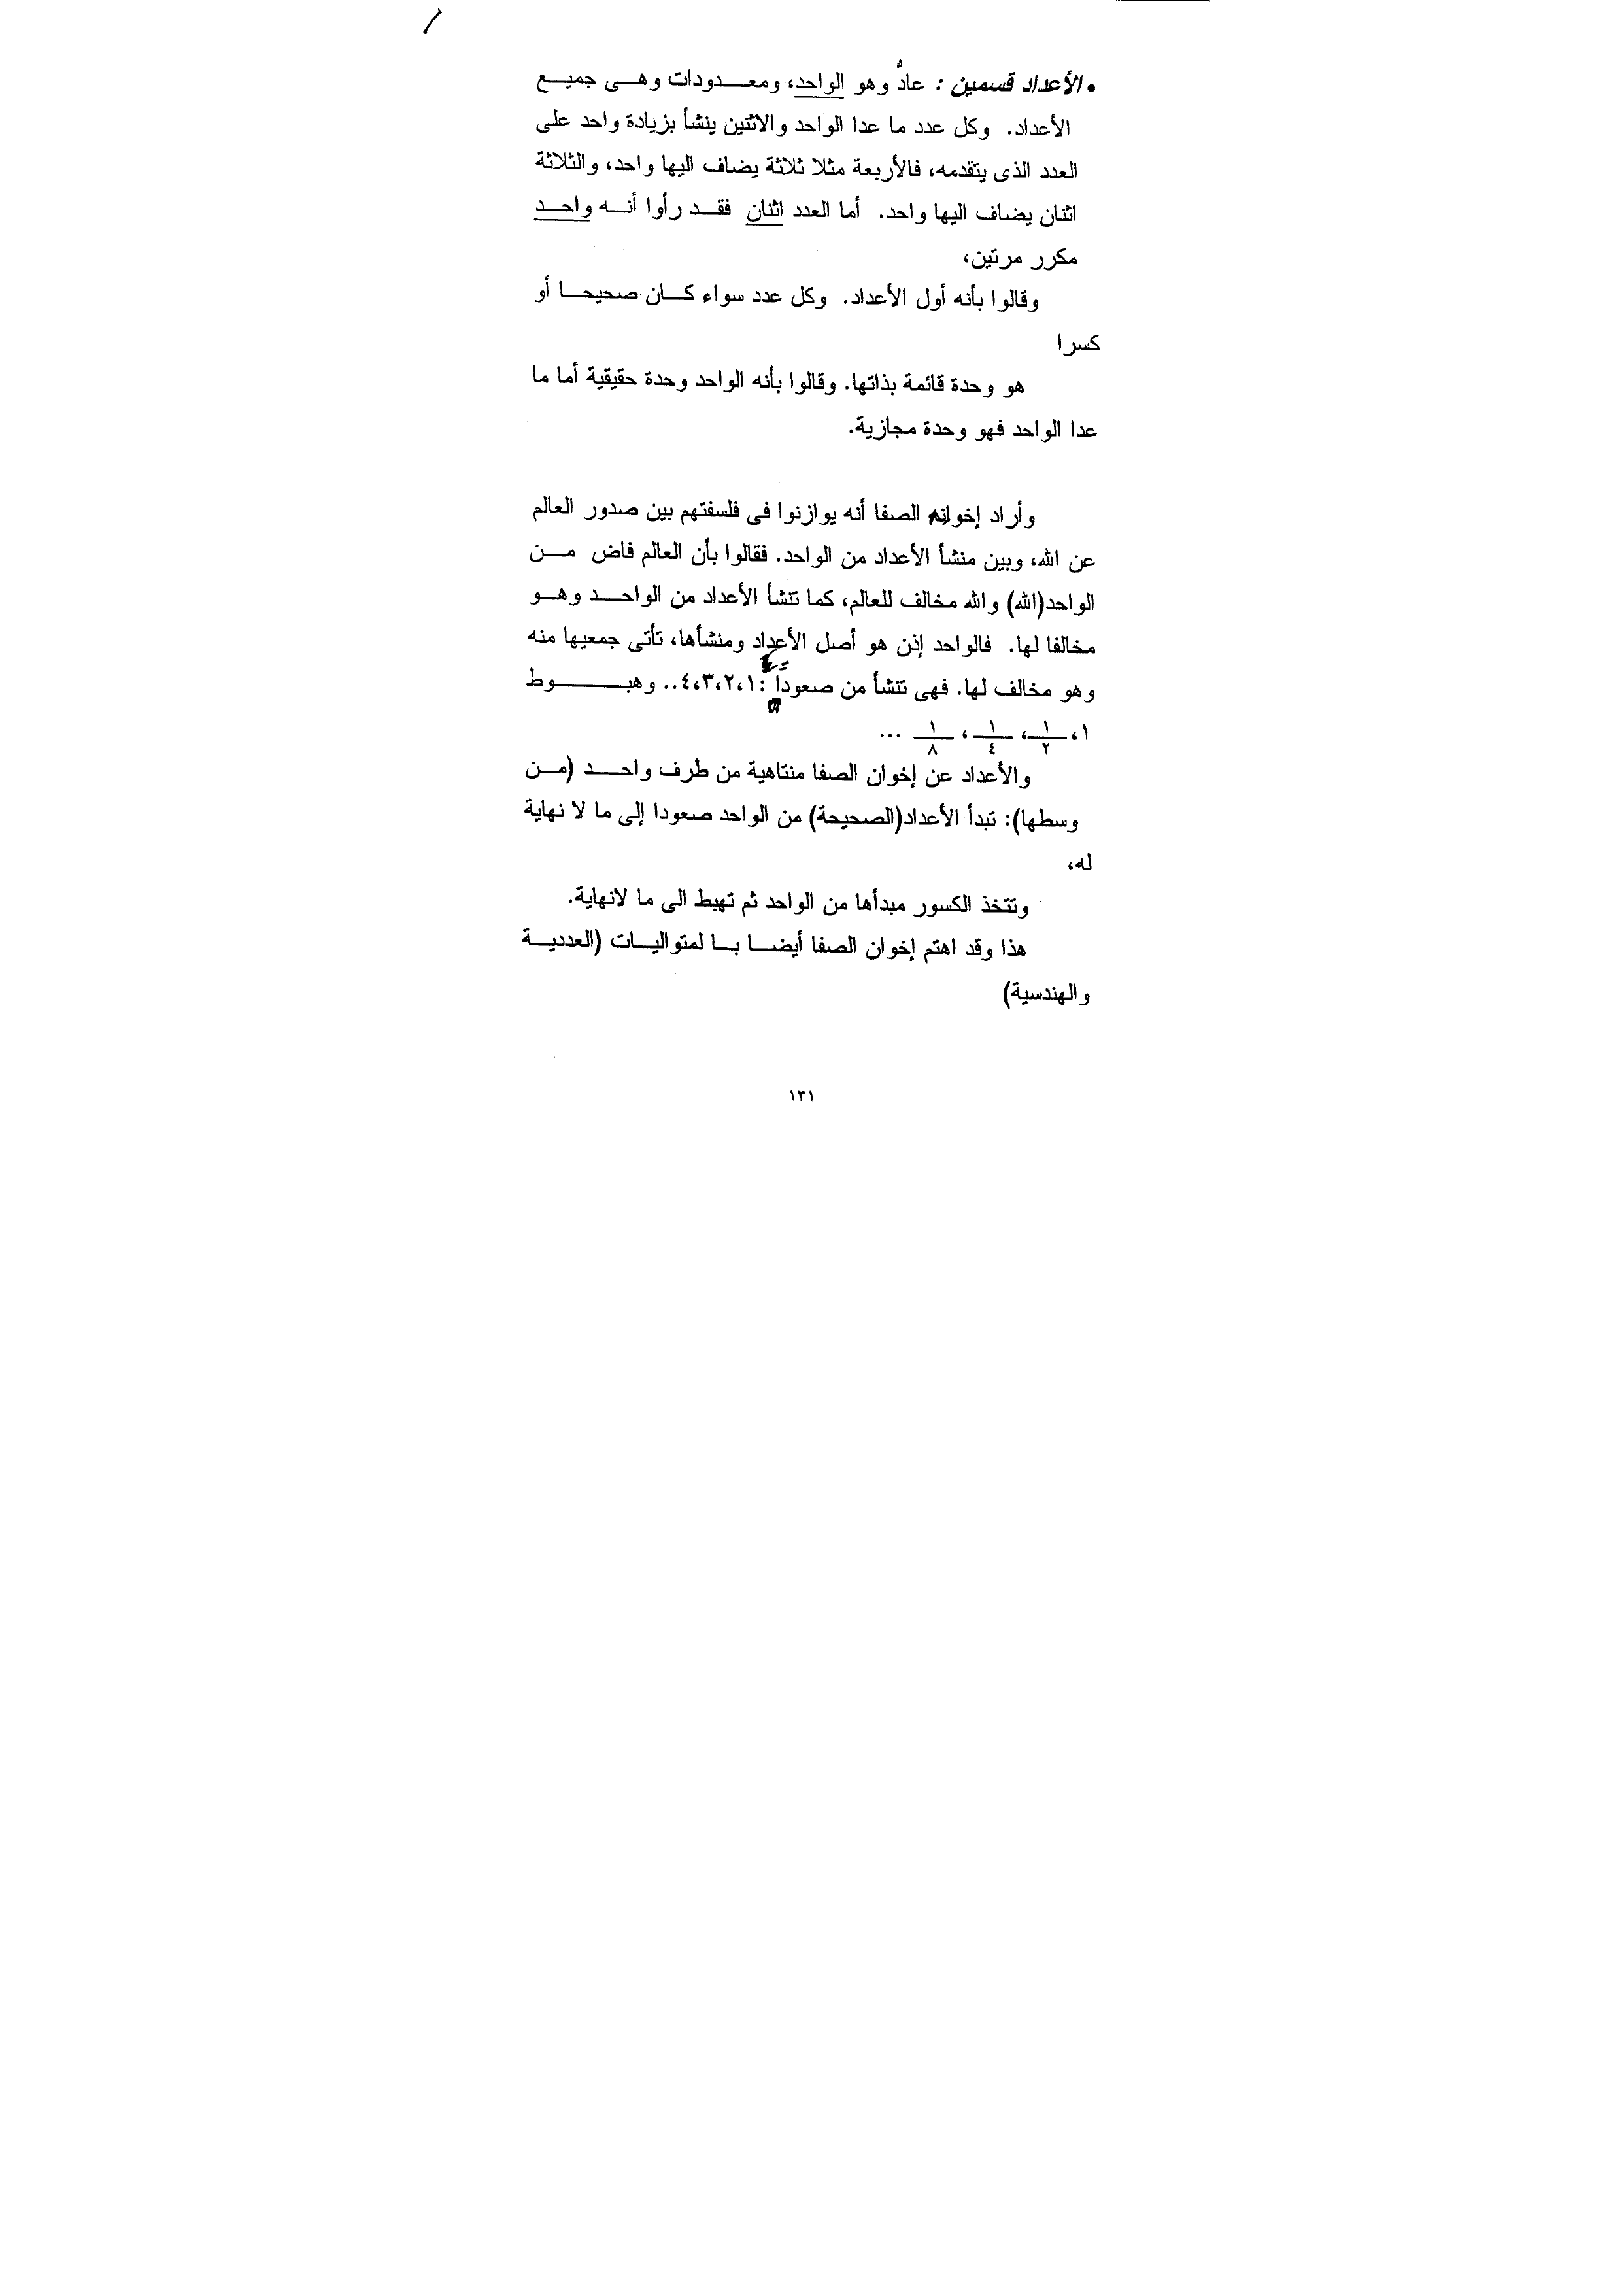 • الأعداد قسمين : عادٌّ وهو الواحد، ومعدودات وهى جميع
الأعداد. وكل عدد ما عدا الواحد والاثنين ينشأ بزيادة واحد على
العدد الذى يتقدمه، فالأربعة مثلا ثلاثة يضاف اليها واحد، والثلاثة
اثنان يضاف اليها واحد. أما العدد اثنان فقد رأوا أنه واحد
مكرر مرتين،
وقالوا بأنه أول الأعداد. وكل عدد سواء كان صحيحا أو
كسرا
هو وحدة قائمة بذاتها. وقالوا بأنه الواحد وحدة حقيقية أما ما
عدا الواحد فهو وحدة مجازية.
وأراد إخوان الصفا أنه يوازنوا فى فلسفتهم بين صدور العالم
عن الله، وبين منشأ الأعداد من الواحد. فقالوا بأن العالم فاض من
الواحد(الله) والله مخالف للعالم، كما تنشأ الأعداد من الواحد وهو
مخالفا لها. فالواحد إذن هو أصل الأعداد ومنشأها، تأتى جمعيها منه
وهو مخالف لها. فهى تنشأ من صعوداً :١،٢،٣،٤.. وهبوط
١، ١/٢، ١/٤، ١/٨ ...
والأعداد عن إخوان الصفا متناهية من طرف واحد (من
وسطها): تبدأ الأعداد(الصحيحة) من الواحد صعودا إلى ما لا نهاية
له،
وتتخذ الكسور مبدأها من الواحد ثم تهبط الى ما لانهاية.
هذا وقد اهتم إخوان الصفا أيضا با لمتواليات (العددية
والهندسية)
١٣١